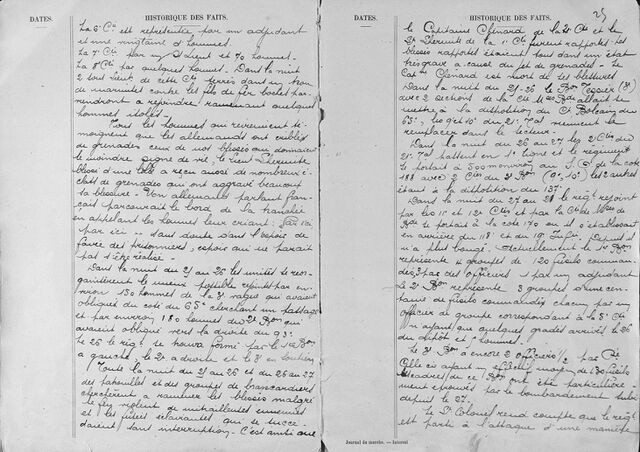 DATES.
HISTORIQUE DES FAITS.
La 6e Cie est représentée par un adjudant
et une vingtaine d'hommes.
La 7e Cie par un S/Lieut et 70 hommes.
La 8e Cie par quelques hommes. Dans la nuit
2 sous lieut de cette Cie terrés dans un trou
de marmites contre les fils de fer boches par-
viendront à rejoindre, ramenant quelques
hommes isolés.
Tous les hommes qui reviennent té-
moignent que les allemands ont criblés
de grenades ceux de nos blessés qui donnaient
le moindre signe de vie, le lieut
blessé d'une balle a reçu aussi de nombreux é-
clats de grenades qui ont aggravé beaucoup
sa blessure. Un allemand parlant fran-
çais parcourait le bord de la tranchée
en appelant les hommes leur criant: par ici
par ici — sans doute dans l'espoir de
faire des prisonniers, espoir qui ne paraît
pas s'être réalisé.
Dans la nuit du 25 au 26 les unités se réor-
ganisèrent le mieux possible rejoints par en-
viron 150 hommes de la 3e vague qui avaient
obliqué du coté du 65e cherchant un passage
et par environ 180 hommes du 2e Bon qui
avaient obliqué vers la droite du 93e
Le 26 le régt se trouva formé par le 1er Bon
à gauche, le 2e à droite et le 3e en soutien
Toute la nuit du 25 au 26 et du 26 au 27
des patrouilles et des groupes de brancardiers
cherchèrent à ramener les blessés malgré
le feu violent de mitrailleuses ennemies
et les fusées éclairantes qui se succé-
daient sans interruption. C'est ainsi que
DATES.
HISTORIQUE DES FAITS.
25
le Capitaine Chénard de la 2e Cie et le
St de la 1e Cie furent rapportés. les
blessés rapportés étaient tous dans un état
très grave à cause du jet de grenades. Le
Capne Chénard est mort de ses blessures.
Dans la nuit du 25-26 le Bon Tessier (3e)
avec 2 sections de la Cie Mses Bde allait se
mettre à la disposition du Ct
65e, les 9 et 10e du 21e Tal viennent le
remplacer dans le secteur.
Dans la nuit du 26 au 27 les 2 Cies du
21e Tal passent en 1e ligne et le régiment
se portait à 500m environ au S.O de la cote
188 avec 2 Cies du 3e Bon (9e-10e) les 2 autres
étant à la disposition du 137e
Dans la nuit du 27 au 28 le régt rejoint
par les 11e et 12e Cies et par la Cie de Mses de
Bde se portait à la cote 170 où il s'établissait
en arrière du 118e et du 19e Inf. Depuis il
n'a plus bougé. Actuellement le 1er Bon
représente 4 groupes de 120 fusils comman-
dés, 3 par des officiers 1 par un adjudant
le 2e Bon représente 3 groupes d'une cen-
taine de fusils commandés chacun par un
officier de groupe correspondant à la 5e Cie
n'ayant que quelques gradés arrivés le 26
du dépôt et hommes.
Le 3e Bon a encore 2 officiers par Cie
Celle ci ayant un effectif moyen de 130 fusils
les cadres de ce Bon ont été particulière-
ment éprouvés par le bombardement subi
depuis le 27.
Le St Colonel rend compte que le régt
est parti à l'attaque d'une manière
Journal de marche. — Intercal